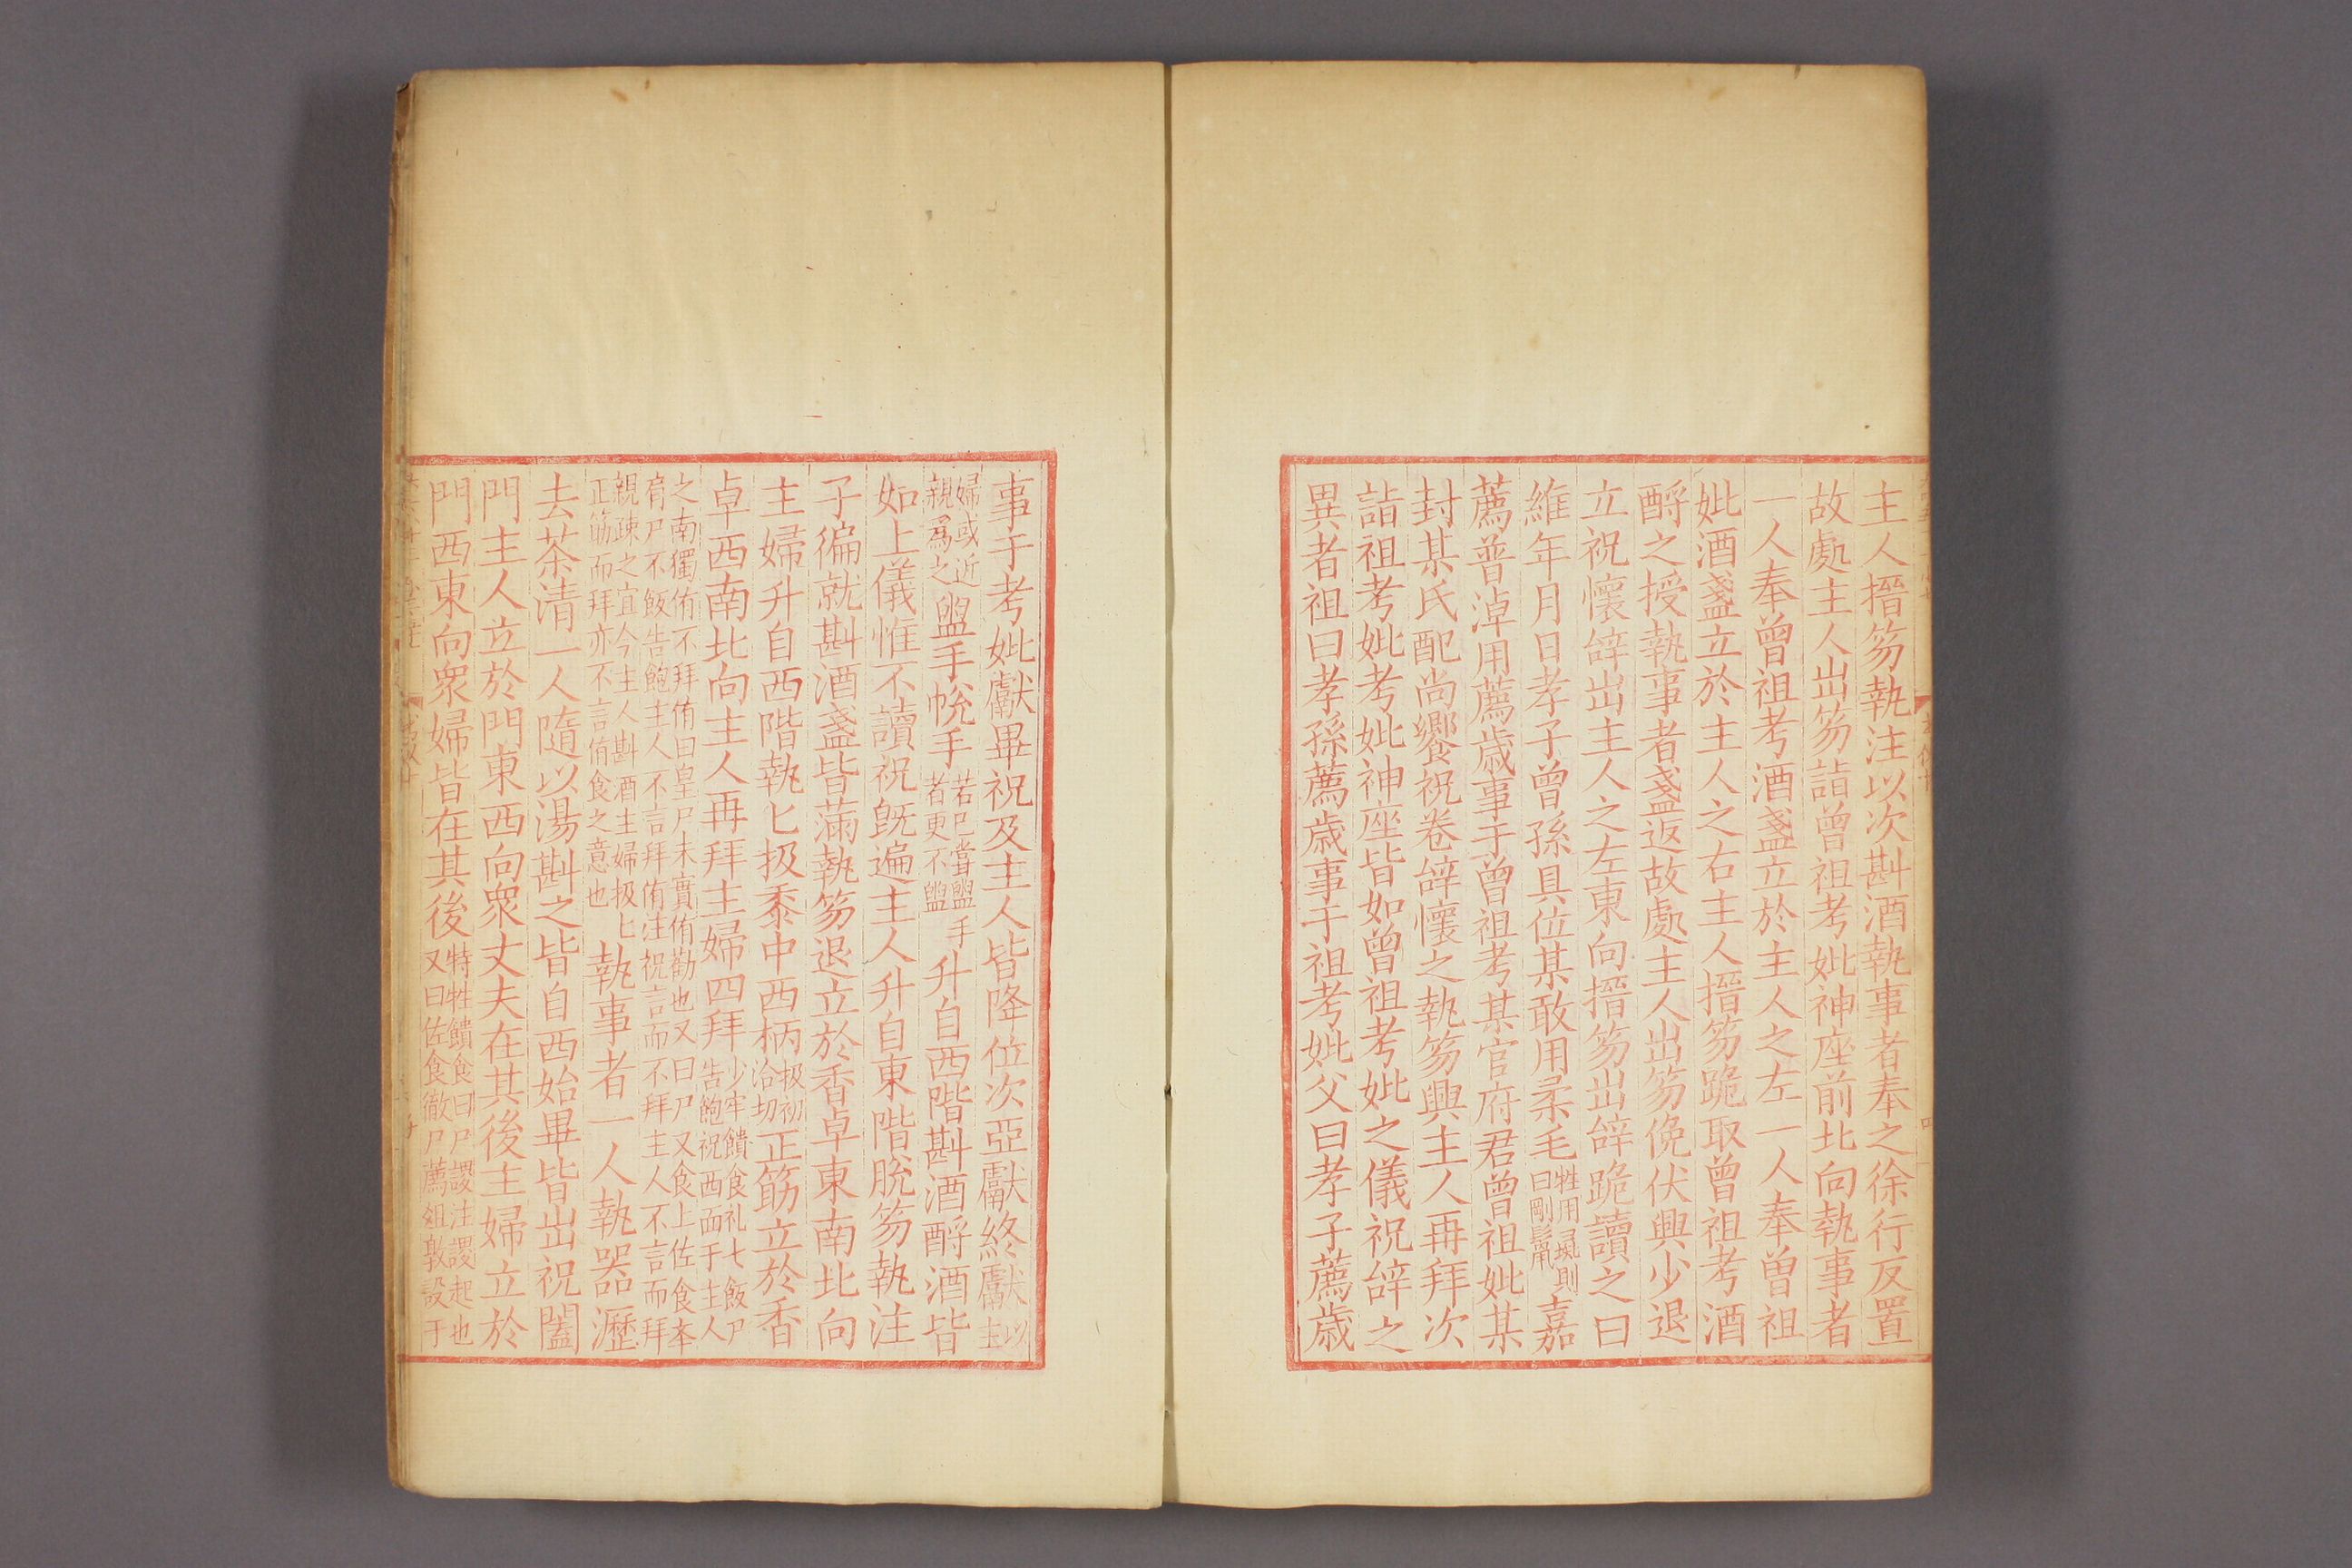 主人搢笏執注以次斟酒執事者奉之徐行反置
故處主人出笏詣曾祖考妣神座前北向執事者
一人奉曾祖考酒盞立於主人之左一人奉曾祖
妣酒盞立於主人之右主人搢笏跪取曾祖考酒
酹之授執事者盞返故處主人出笏俛伏興少退
立祝懷辝出主人之左東向搢笏出辝跪讀之曰
維年月日孝子曾孫具位某敢用柔毛牲用彘則曰剛鬛嘉
薦普淖用薦歳事于曾祖考某官府君曾祖妣某
封某氏配尚饗祝卷辝懷之執笏興主人再拜次
詣祖考妣考妣神座皆如曾祖考妣之儀祝辝之
異者祖曰孝孫薦歳事于祖考妣父曰孝子薦歳
事于考妣獻畢祝及主人皆降位次亞獻終獻以主
婦或近親為之盥手帨手若已嘗盥手若更不盥升自西階斟酒酹酒皆
如上儀惟不讀祝既遍主人升自東階脫笏執注
子徧就斟酒盞皆滿執笏退立於香卓東南北向
主婦升自西階執匕扱黍中西柄扱初洽切正筯立於香
卓西南北向主人再拜主婦四拜少牢饋食礼七飯尸告飽祝西面于主人
之南獨侑不拜侑曰皇尸未實侑勸也又曰尸又食上佐食夲
有尸不飯告飽主人不言拜侑注祝言而不拜主人不言而拜
親疎之宜今主人斟酒主婦扱匕正筯而拜亦不言侑食之意也執事者一人執器瀝
去茶清一人隨以湯斟之皆自西始畢皆出祝闔
門主人立於門東西向衆丈夫在其後主婦立於
門西東向衆婦皆在其後特牲饋食曰尸謖注謖起也又曰佐食徹尸薦俎敦設于